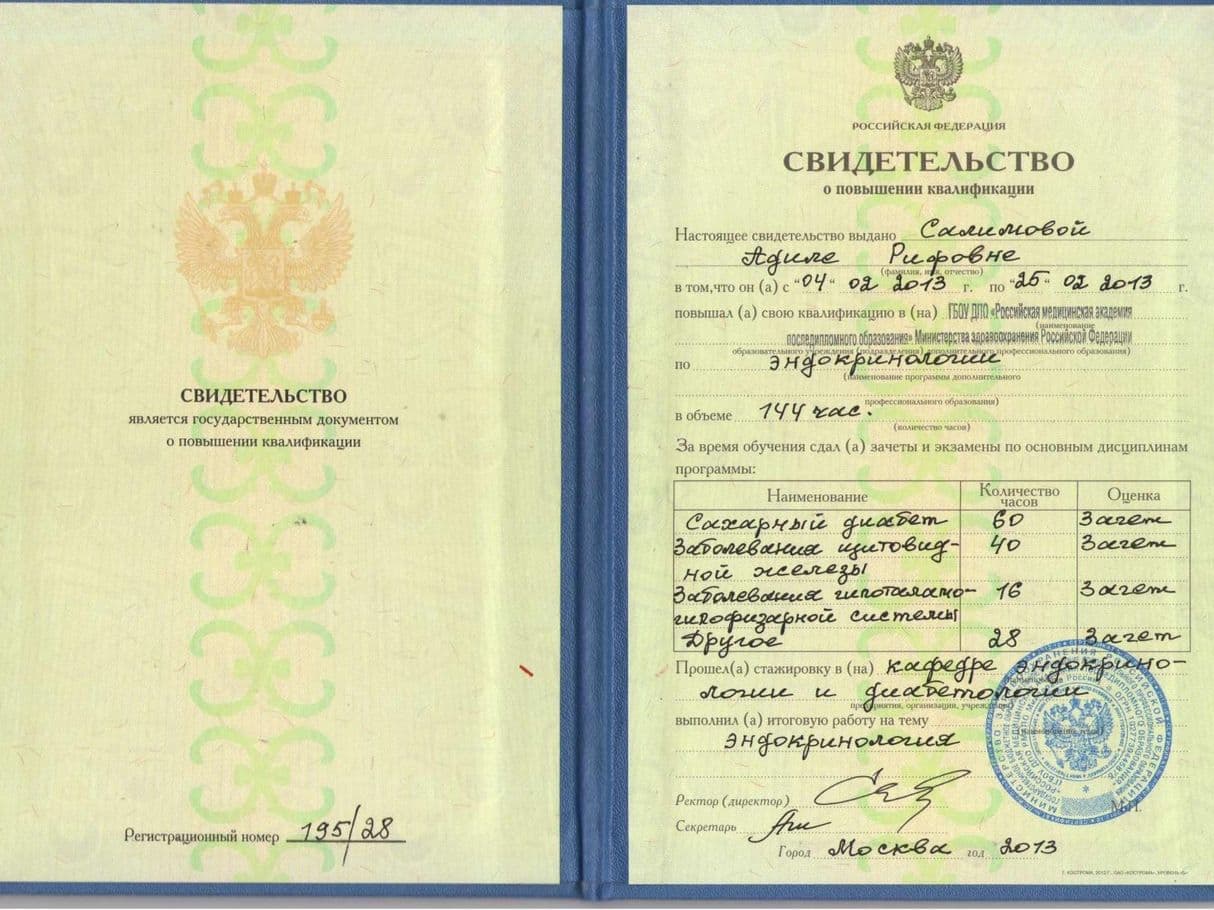 СВИДЕТЕЛЬСТВО
является государственным документом
о повышении квалификации
Регистрационный номер 195/28
РОССИЙСКАЯ ФЕДЕРАЦИЯ
СВИДЕТЕЛЬСТВО
о повышении квалификации
Настоящее свидетельство выдано Салимовой
Адиле Рифовне
(фамилия, имя, отчество)
в том,что он (а) с "04" 02 2013 г. по "25" 02 2013 г.
повышал (а) свою квалификацию в (на) ГБОУ ДПО «Российская медицинская академия
(наименование
последипломного образования» Министерства здравоохранения Российской Федерации
образовательного учреждения (подразделения) дополнительного профессионального образования)
по эндокринологии
(наименование программы дополнительного
профессионального образования)
в объеме 144 час.
(количество часов)
За время обучения сдал (а) зачеты и экзамены по основным дисциплинам
программы:
Наименование Количество часов Оценка
Сахарный диабет 60 Зачет
Заболевания щитовид- 40 Зачет
ной железы
Заболевания гипоталамо- 16 Зачет
гипофизарной системы
Другое 28 Зачет
Прошел(а) стажировку в (на) кафедре эндокрино-
логии и диабетологии
предприятия, организации, учреждения)
выполнил (а) итоговую работу на тему
эндокринология
Ректор (директор)
Секретарь
М.П.
Город Москва год 2013